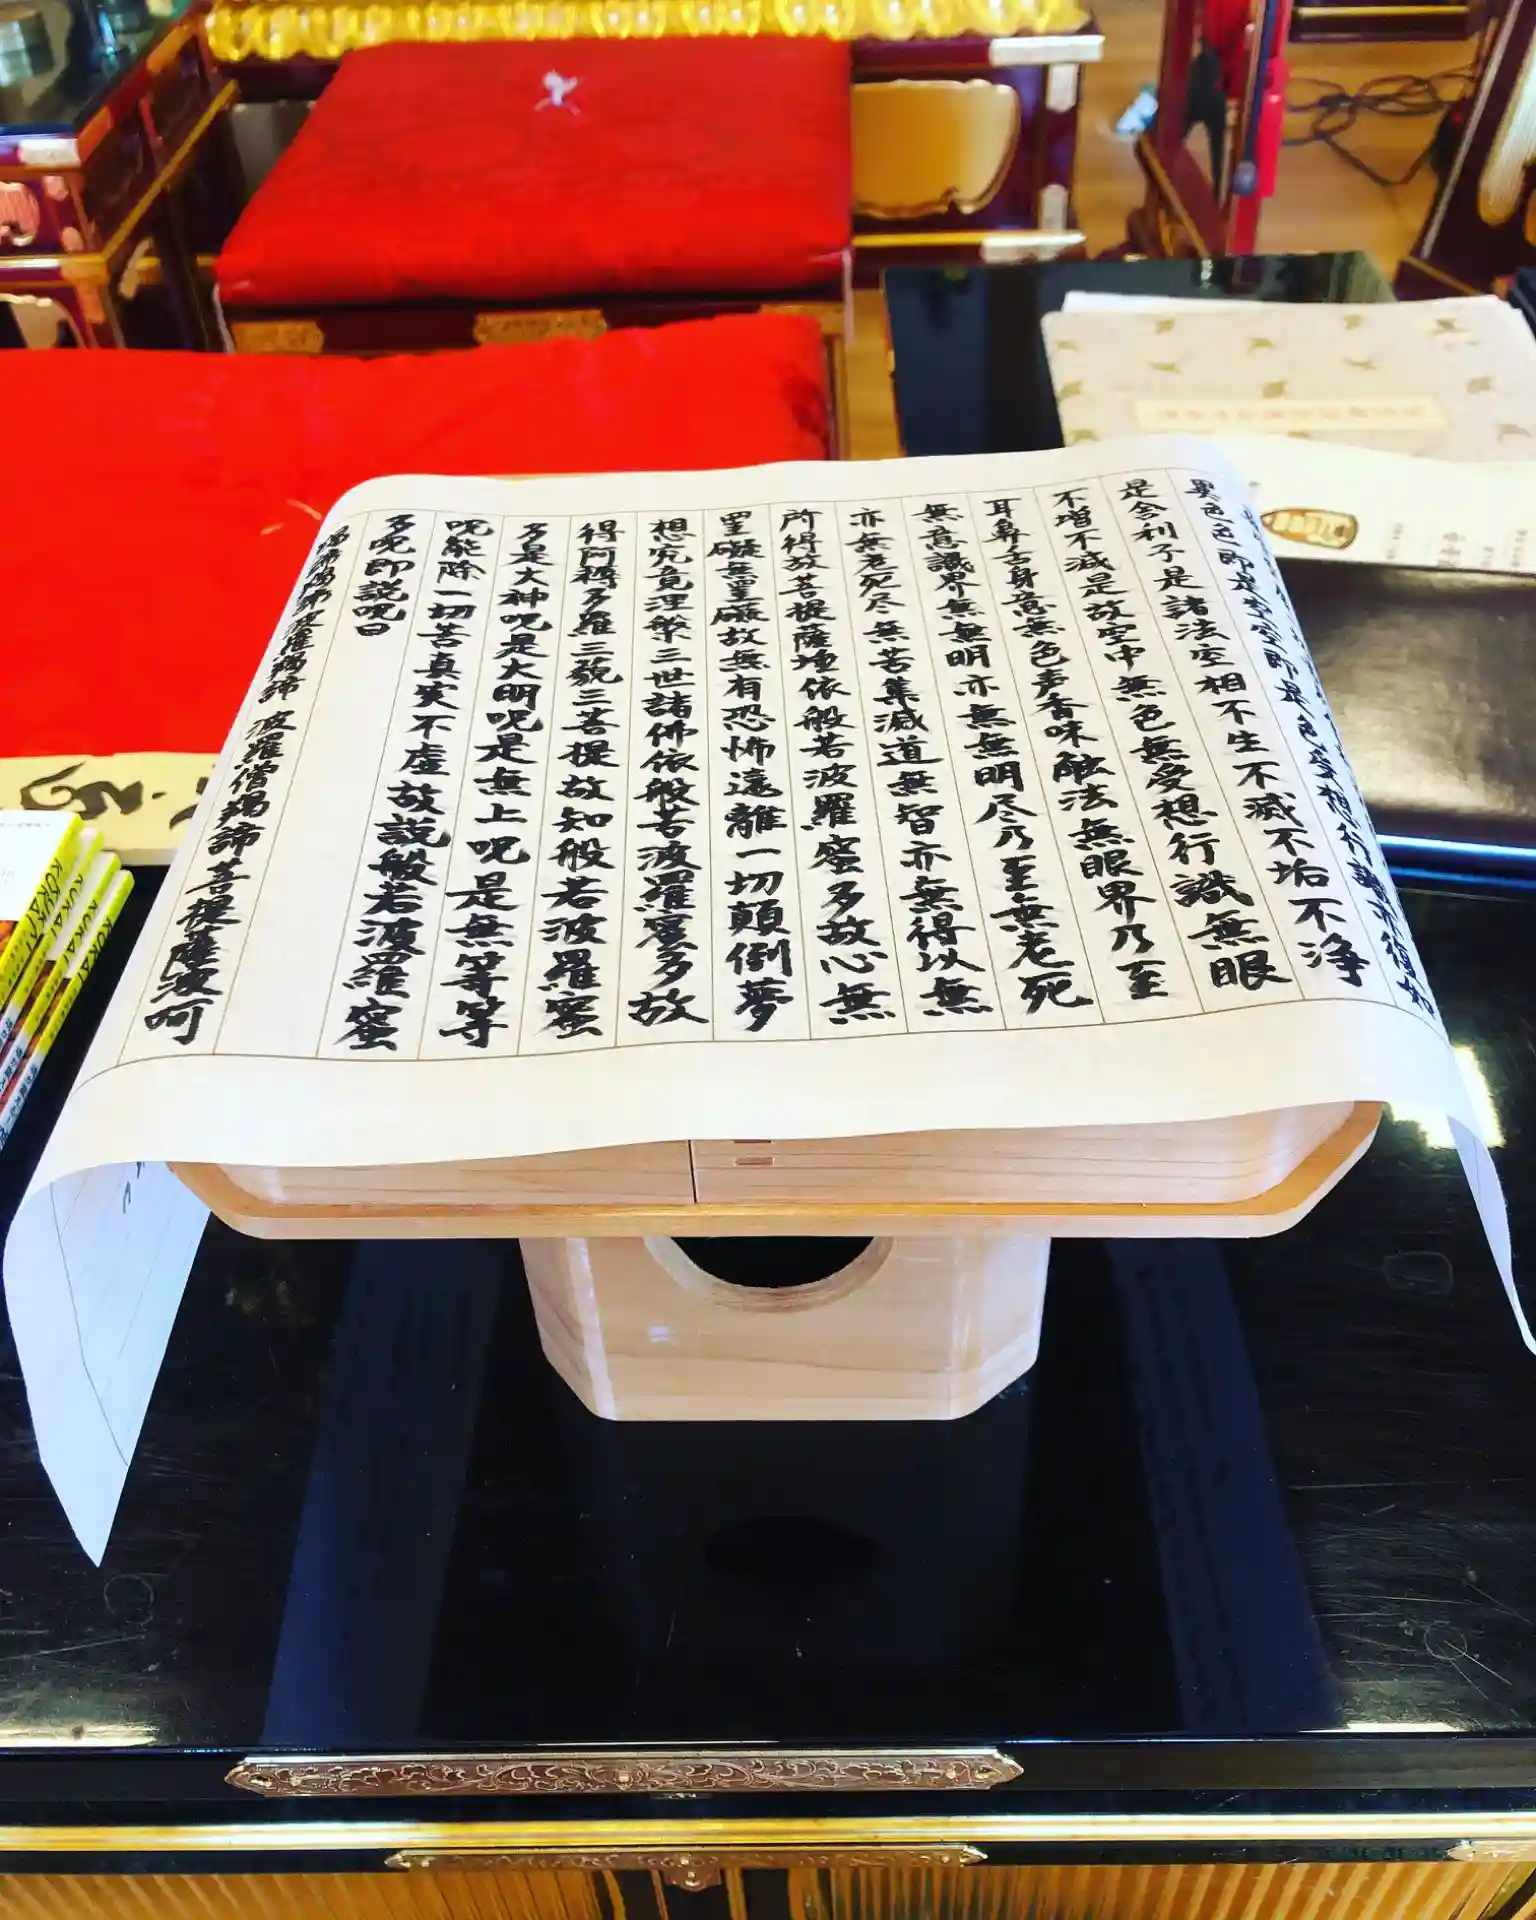 異色色即是空空即是色受想行識亦復如
是舎利子是諸法空相不生不滅不垢不浄
不増不減是故空中無色無受想行識無眼
耳鼻舌身意無色声香味触法無眼界乃至
無意識界無無明亦無無明尽乃至無老死
亦無老死尽無苦集滅道無智亦無得以無
所得故菩提薩埵依般若波羅蜜多故心無
罣礙無罣礙故無有恐怖遠離一切顛倒夢
想究竟涅槃三世諸佛依般若波羅蜜多故
得阿耨多羅三藐三菩提故知般若波羅蜜
多是大神呪是大明呪是無上呪是無等等
呪能除一切苦真実不虚故説般若波羅蜜
多呪即説呪曰
羯諦羯諦波羅羯諦 波羅僧羯諦菩提薩婆呵
KUKAI
KUKAI
KUKAI